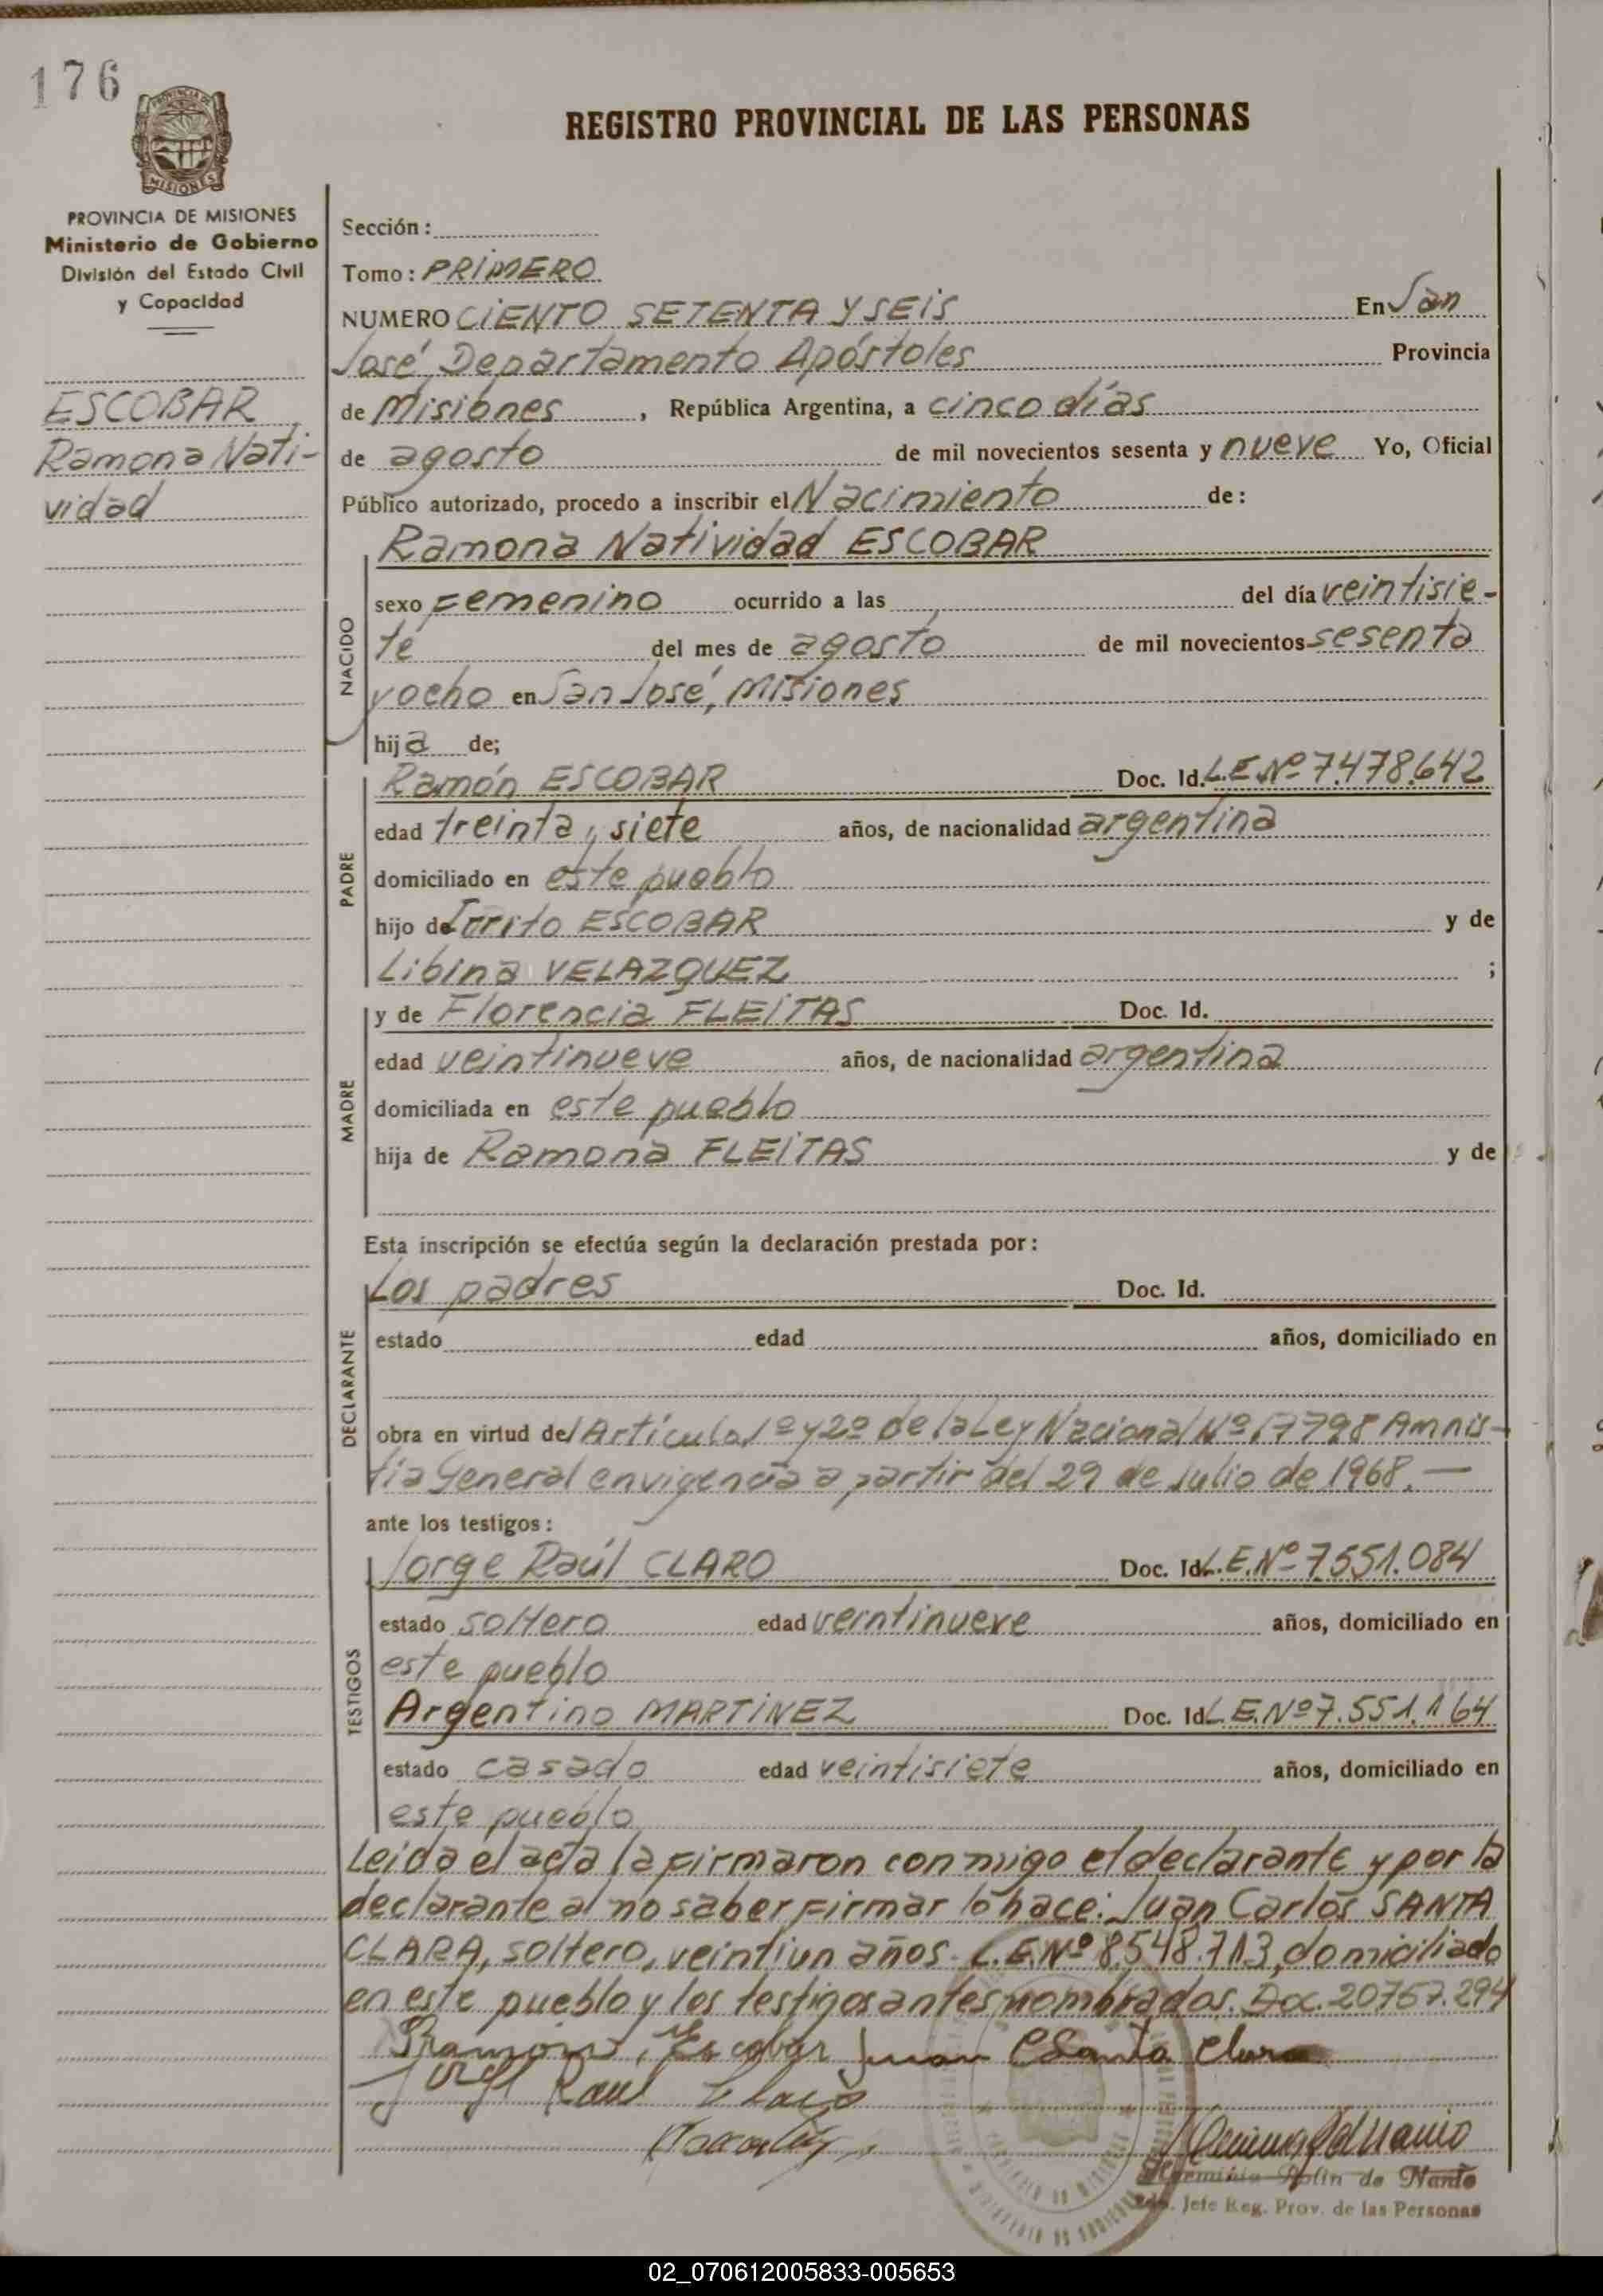 176
PROVINCIA DE MISIONES
Ministerio de Gobierno
División del Estado Civil
y Capacidad
ESCOBAR
Ramona Nati-
vidad
REGISTRO PROVINCIAL DE LAS PERSONAS
Sección:
Tomo: PRIMERO
NUMERO CIENTO SETENTA Y SEIS En San
José, Departamento Apóstoles Provincia
de Misiones, República Argentina, a cinco días
de agosto de mil novecientos sesenta y nueve Yo, Oficial
Público autorizado, procedo a inscribir el Nacimiento de:
Ramona Natividad ESCOBAR
NACIDO
sexo Femenino ocurrido a las del día veintisie-
te del mes de agosto de mil novecientos sesenta
yocho en San José, Misiones
hija de;
PADRE
Ramón ESCOBAR Doc. Id. L.E.Nº 7.478.642
edad treinta y siete años, de nacionalidad argentina
domiciliado en este pueblo
hijo de ESCOBAR y de
Libina VELAZQUEZ ;
MADRE
y de Florencia FLEITAS Doc. Id.
edad veintinueve años, de nacionalidad argentina
domiciliada en este pueblo
hija de Ramona FLEITAS y de
Esta inscripción se efectúa según la declaración prestada por:
DECLARANTE
Los padres Doc. Id.
estado edad años, domiciliado en
obra en virtud del Artículo 1º y 2º de la Ley Nacional Nº 17798 Amnis-
tía General en vigencia a partir del 29 de Julio de 1968.—
ante los testigos:
TESTIGOS
Jorge Raúl CLARO Doc. Id L.E.Nº 7.551.084
estado soltero edad veintinueve años, domiciliado en
este pueblo
Argentino MARTINEZ Doc. Id L.E.Nº 7.551.164
estado casado edad veintisiete años, domiciliado en
este pueblo
Leida el acta la firmaron conmigo el declarante y por la
declarante al no saber firmar lo hace: Juan Carlos SANTA
CLARA, soltero, veintiun años. L.E.Nº 8.548.713, domiciliado
en este pueblo y los testigos antes nombrados. Doc. 20757.294
Ramón Escobar Juan C Santa Clara
Jorge Raul Claro
Herminia Polin de Nanio
Jefe Reg. Prov. de las Personas
02_070612005833-005653